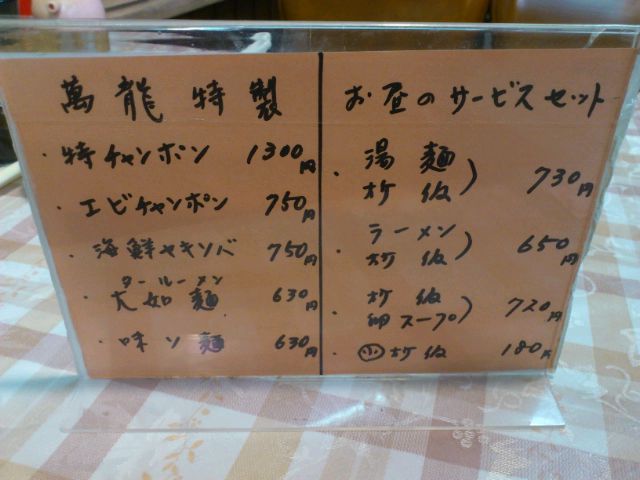 萬龍特製
・特チャンポン 1300円
・エビチャンポン 750円
・海鮮ヤキソバ 750円
タールーメン
・大如麺 630円
・味ソ麺 630円
お昼のサービスセット
・湯麺
炒飯) 730円
・ラーメン
炒飯) 650円
・炒飯
卵スープ) 720円
・㊙炒飯 180円